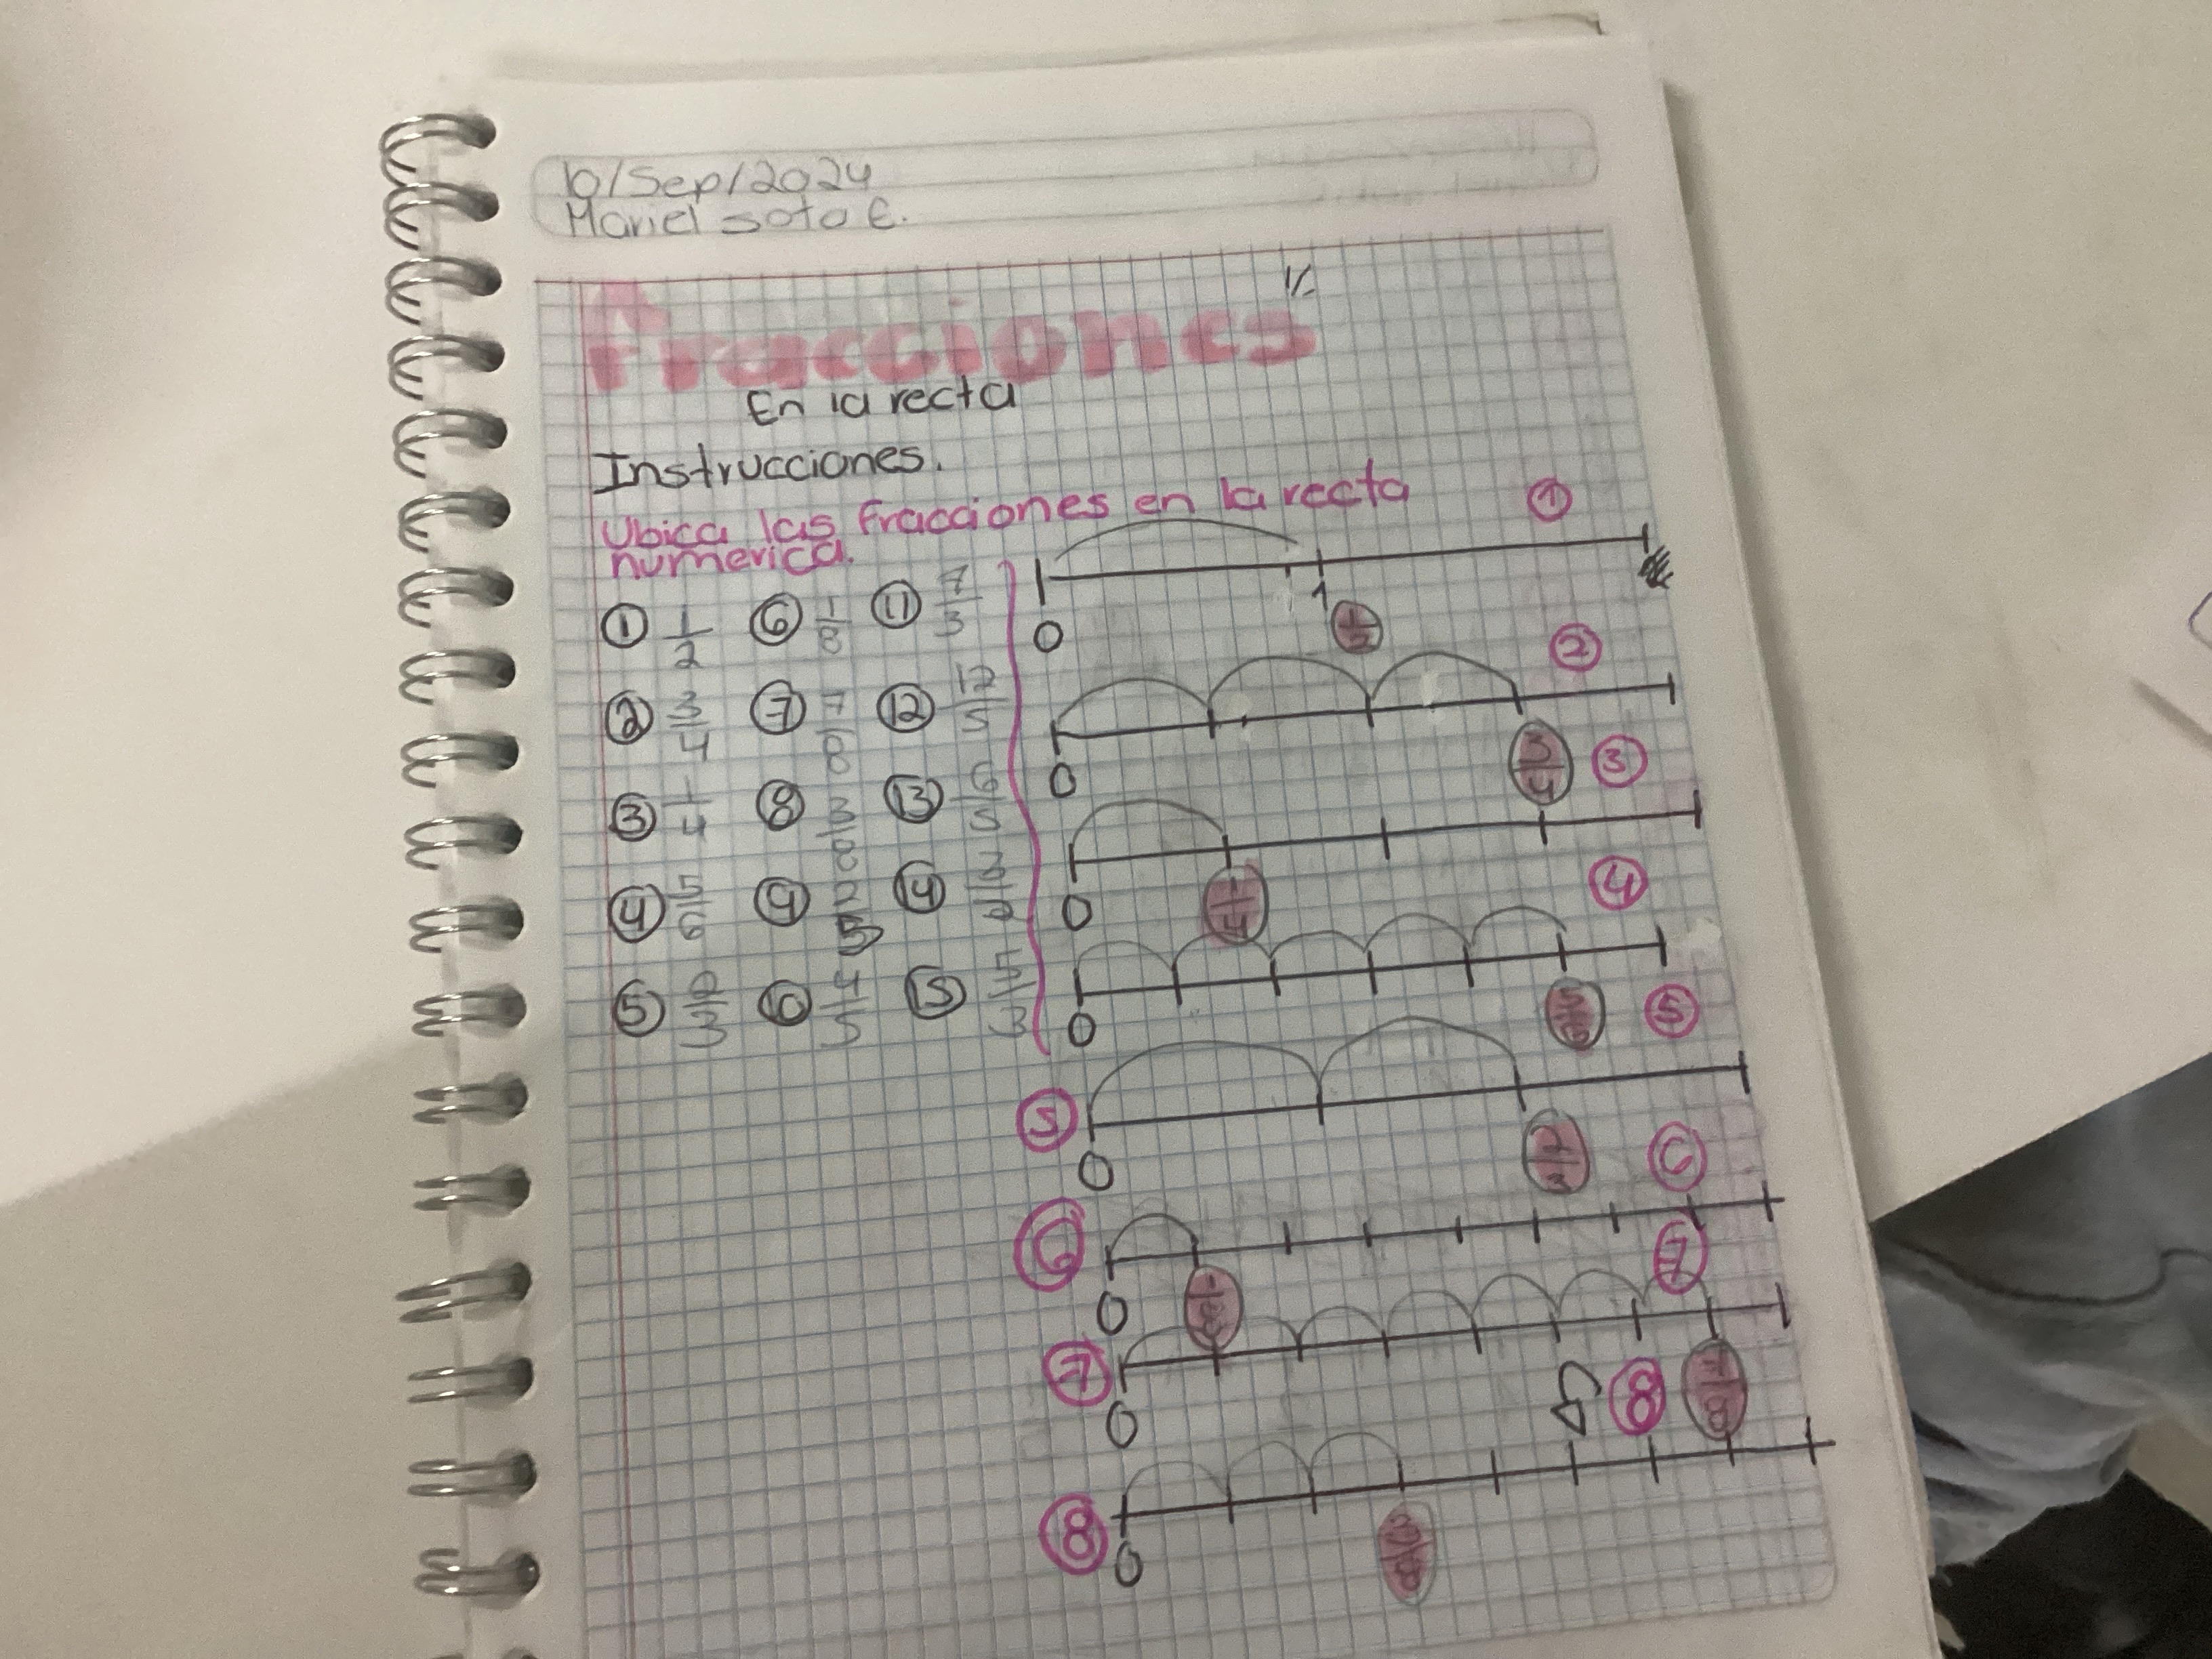 10/Sep/2024
Mariel Soto E.
1/2
Fracciones
En la recta
Instrucciones.
Ubica las fracciones en la recta
numerica.
① 1/2 ⑥ 1/8 ⑪ 7/3
② 3/4 ⑦ 7/8 ⑫ 12/5
③ 1/4 ⑧ 3/8 ⑬ 6/5
④ 5/6 ⑨ ⑭
⑤ 2/3 ⑩ 4/5 ⑮ 5/3
①
0 1 1/2
②
0 3/4
③
0 1/4
④
0 5/6
⑤
⑤
0 2/3
⑥
⑥
0 1/8
⑦
⑦
0 7/8
⑧
⑧
0 3/8